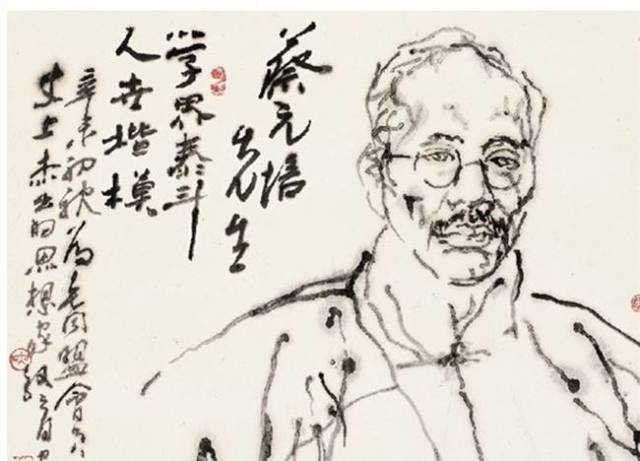 蔡元培
先生
学界泰斗
人世楷模
辛未初秋为老同盟会
史上杰出的思想家